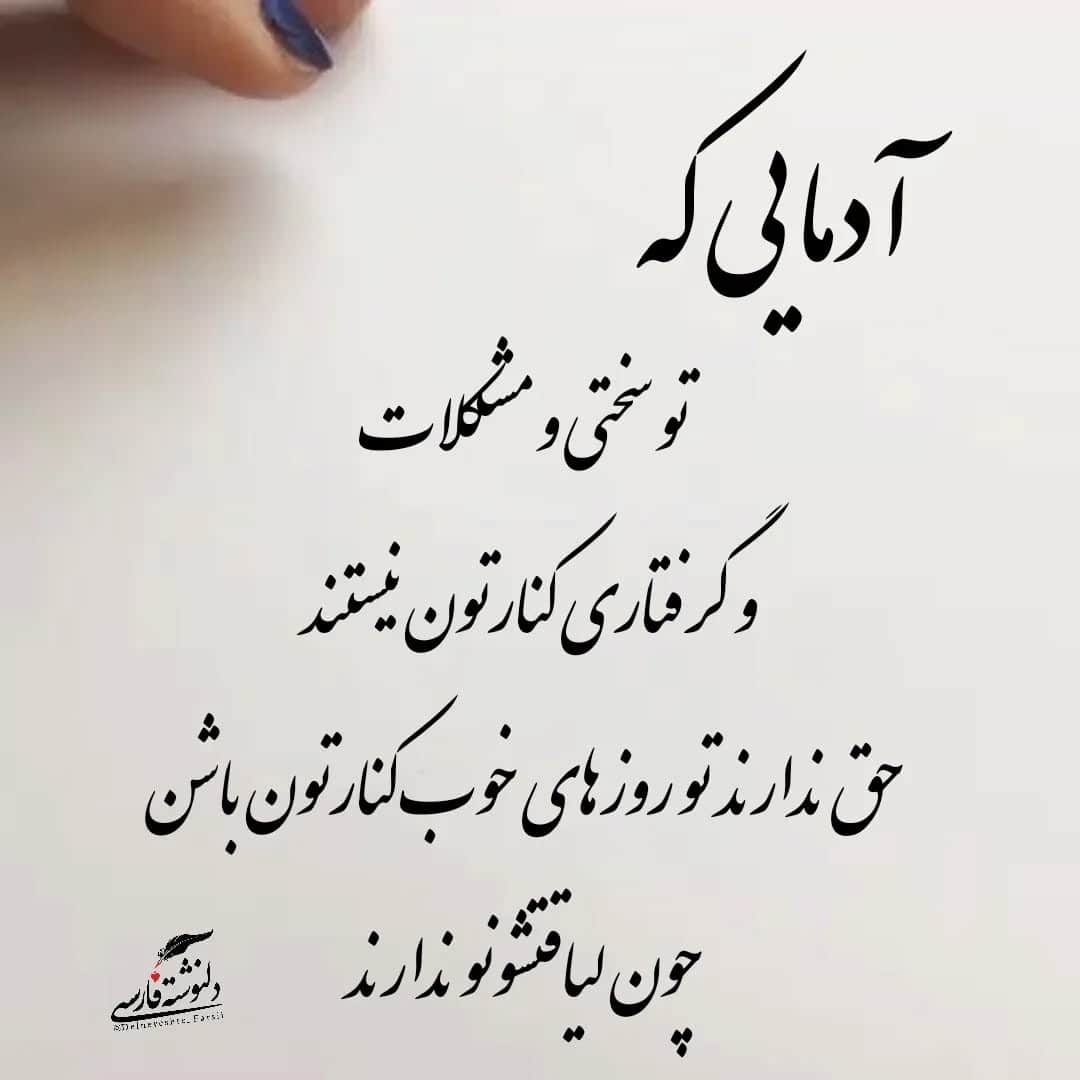 آدمایی که
تو سختی و مشکلات
و گرفتاری کنارتون نیستند
حق ندارند تو روزهای خوب کنارتون باشن
چون لیاقتشونو ندارند
دلنوشته فارسی
@Delneveshte_Farsii